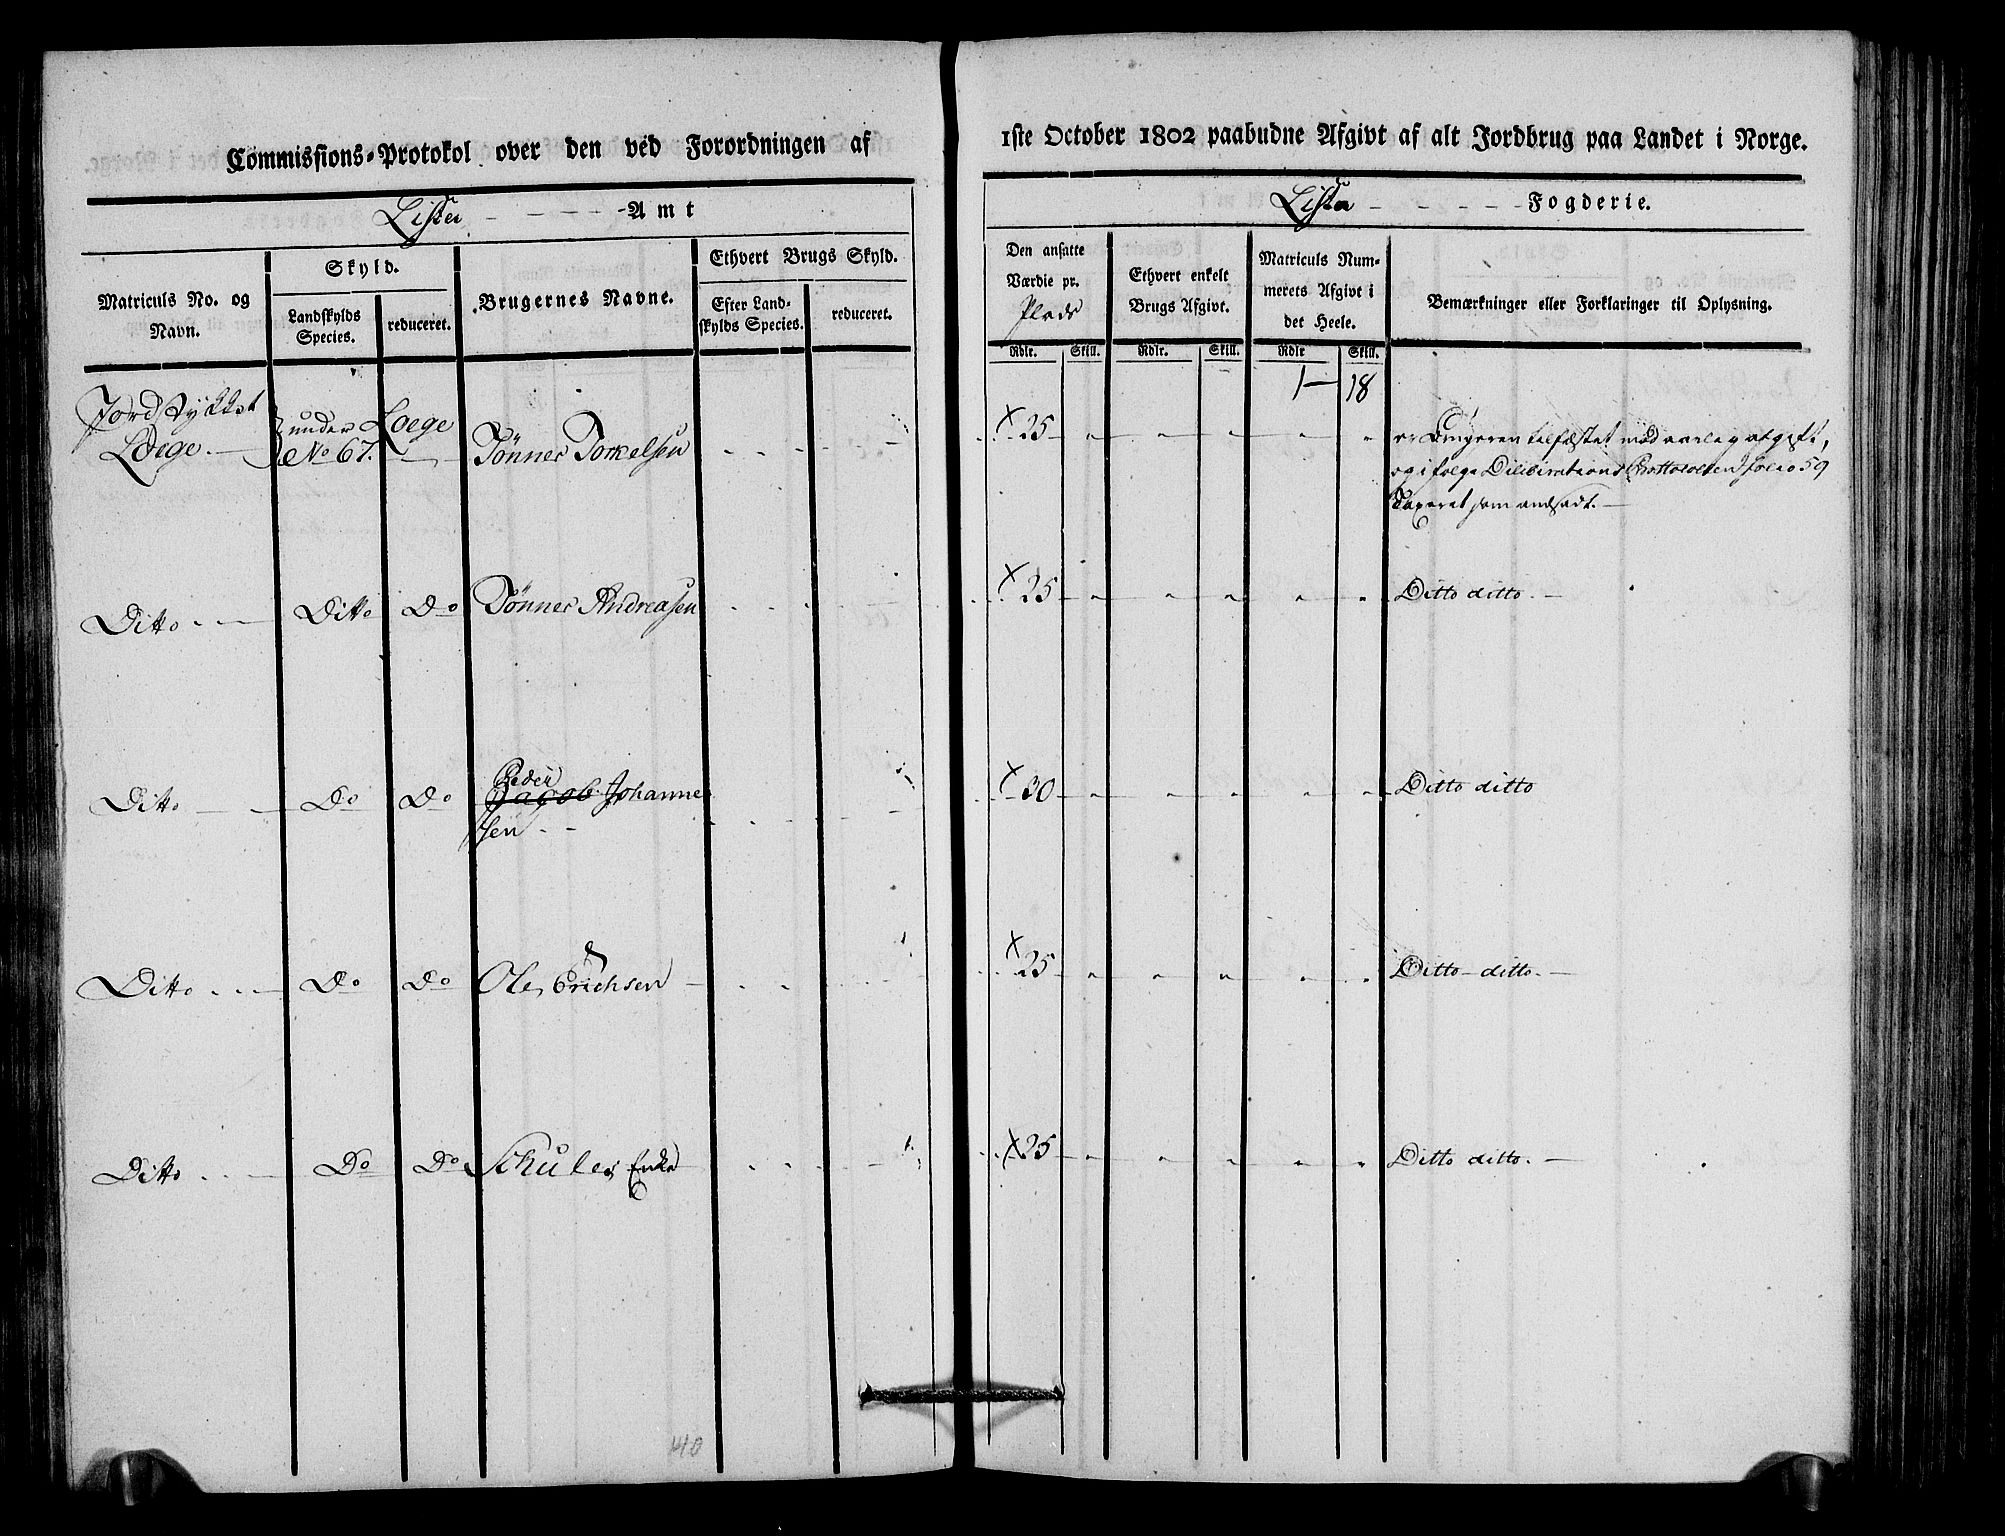 Commissions-Protokol over den ved Forordningen af
Lister Amt
Matriculs No. og Navn.
Skyld.
Landskylds Species.
reduceret.
Brugernes Navne.
Ethvert Brugs Skyld.
Efter Landskylds Species.
reduceret.
Jordstykket under Loege
Loege. No 67. Tønnes Torkelsen
Ditto Ditto Do Tønnes Andreasen
Peder
Ditto Do Do Jacob Johanne
sen
Ditto Do Do Ole Erichsen
Ditto Do Do Schules Enke
140
1ste October 1802 paabudne Afgivt af alt Jordbrug paa Landet i Norge.
Lister Fogderie.
Den ansatte Værdie pr. Plads
Ethvert enkelt Brugs Afgivt.
Matriculs Nummerets Afgivt i det Heele.
Bemærkninger eller Forklaringer til Oplysning.
Rdlr. Skill. Rdlr. Skill. Rdlr Skill.
1 18
x 25 er Brugeren tilfæstet mod aarlig afgift,
og i følge Deliberations Prottocollen folio 59
Taxeret som andsadt.
x 25 Ditto ditto.
x 30 Ditto ditto
x 25 Ditto ditto.
x 25 Ditto ditto.